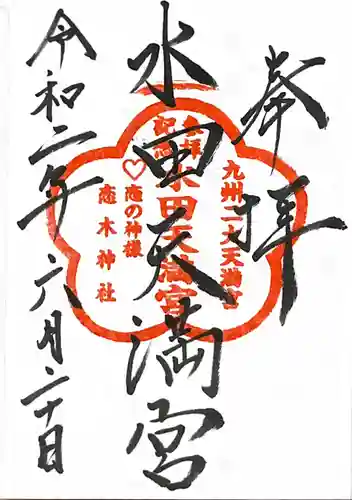 奉拝
水田天満宮
令和二年六月二十日
九州二大天満宮
参拝記念
水田天満宮
♡恋の神様
恋木神社